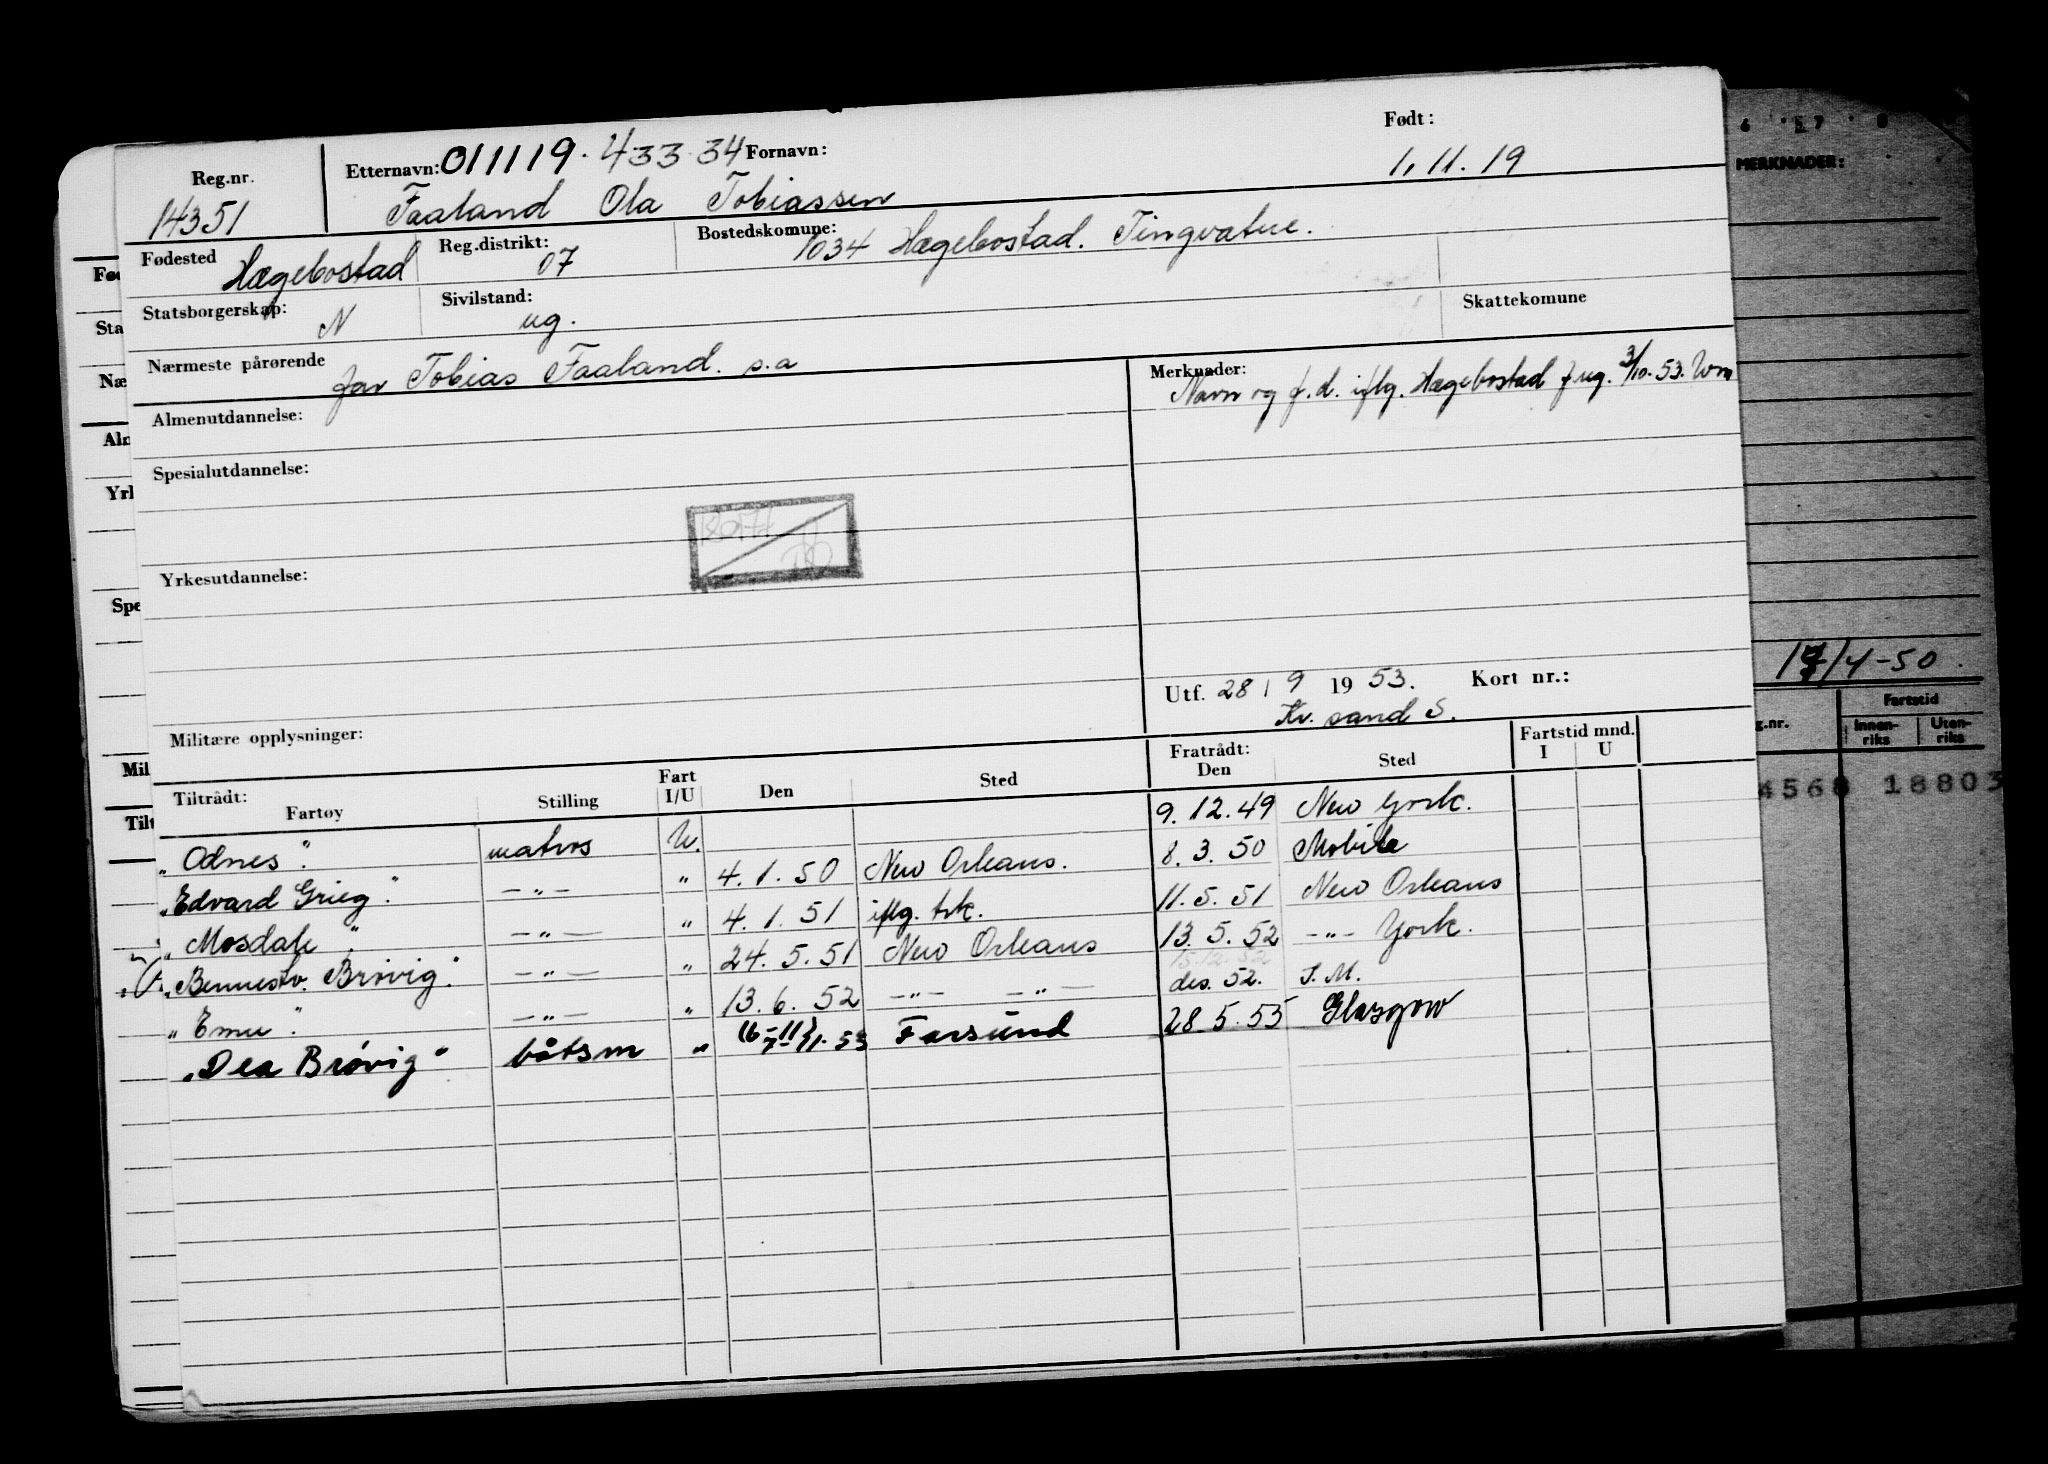 Reg.nr. Etternavn: 011119. 433 34 Fornavn: Født:
14351 Faaland Ola Tobiassen 1. 11. 19
Fødested Hægebostad Reg.distrikt: 07 Bostedskomune: 1034 Hægebostad. Tingvatne.
Statsborgerskap: N Sivilstand: ug. Skattekomune
Nærmeste pårørende far Tobias Faaland. s.a Merknader:
Navn og f.d. iflg. Hægebostad freg. 3/10-53.
Almenutdannelse:
Spesialutdannelse:
Yrkesutdannelse:
Utf. 28/9 1953. Kort nr.:
Kr. sand S.
Militære opplysninger:
Tiltrådt: Fratrådt: Fartstid mnd.
Fartøy Stilling Fart I/U Den Sted Den Sted I U
„Odnes". matros U. 9. 12. 49 New York.
„Edvard Grieg". -"- " 4. 1. 50 New Orleans. 8. 3. 50 Mobile
„Mosdale". -"- " 4. 1. 51 iflg. trk. 11. 5. 51 New Orleans
„Bennestv. Brøvig". -"- " 24. 5. 51 New Orleans 13. 5. 52 -"- York.
15.12.52
„Emu". -"- " 13. 6. 52 -"- -"- des. 52. S.M.
„Dea Brøvig" båtsm " Farsund 28. 5. 55 Glasgow
6 7 8
MERKNADER:
/4-50.
g.nr. Fartstid
Innen-riks Uten-riks
4568 18803
Fød
Sta
Næ
Aln
Yrl
Spe
Mil
Tilt